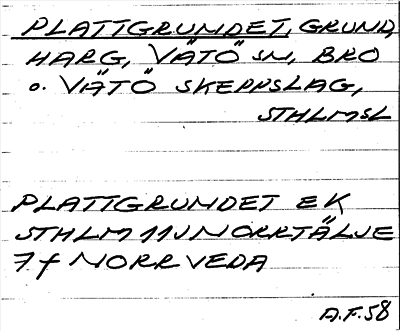 PLATTGRUNDET, GRUND,
HARG, VÄTÖ SN, BRO
o. VÄTÖ SKEPPSLAG,
STHLMSL
PLATTGRUNDET EK
STHLM 11J NORRTÄLJE
7f NORRVEDA
A.F.58